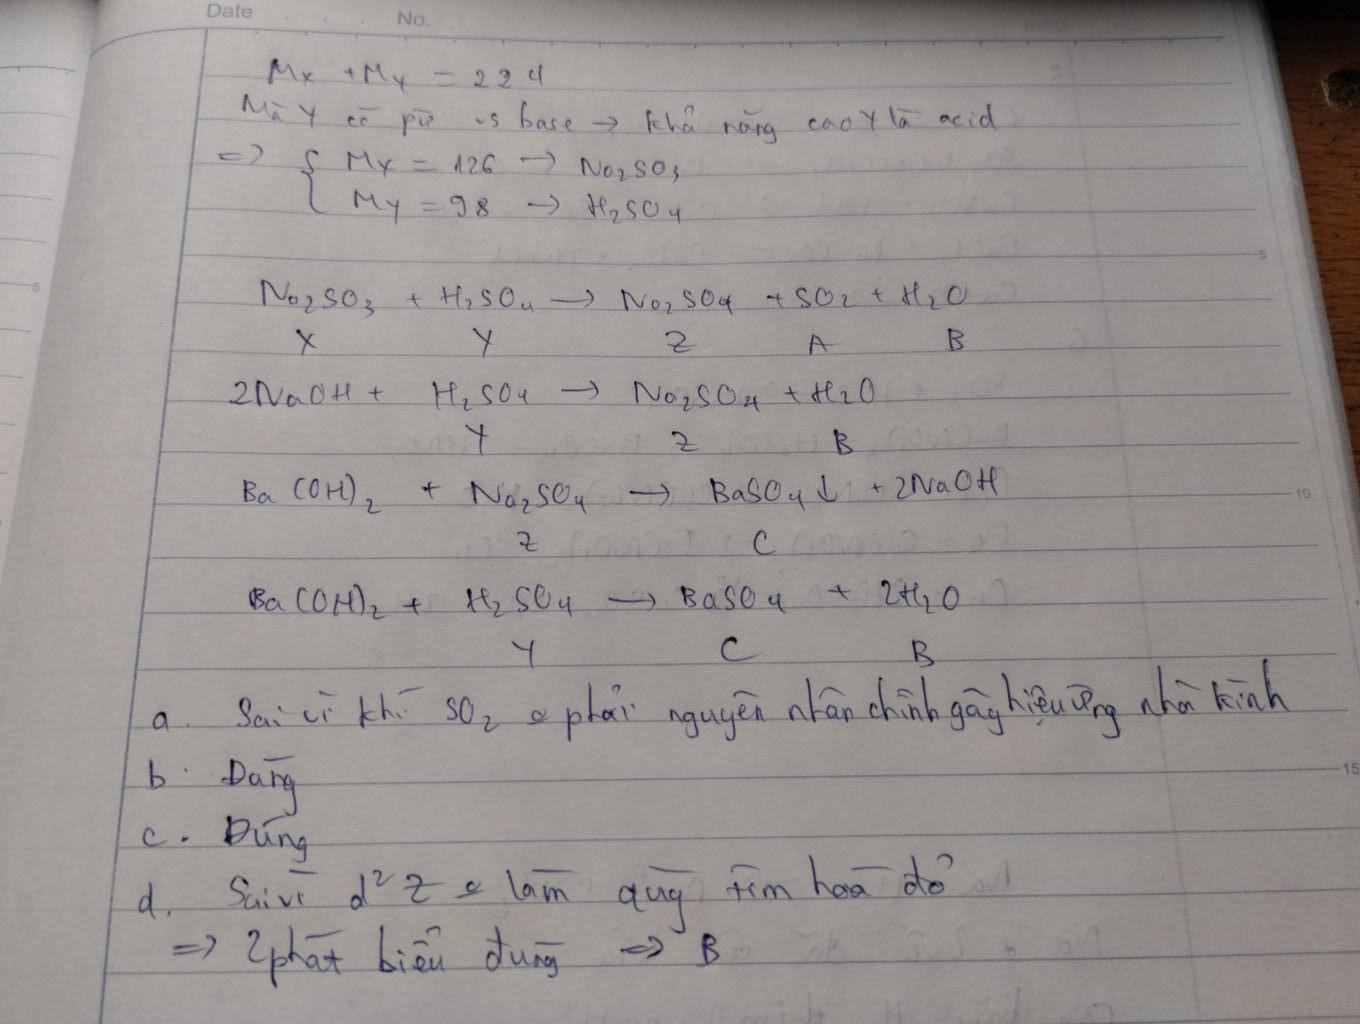 Date No.
Mx + My = 224
Mà Y có pứ vs base → khả năng cao Y là acid
=> { Mx = 126 → Na2SO3
My = 98 → H2SO4
Na2SO3 + H2SO4 → Na2SO4 + SO2 + H2O
X Y Z A B
2NaOH + H2SO4 → Na2SO4 + H2O
Y Z B
Ba(OH)2 + Na2SO4 → BaSO4↓ + 2NaOH
Z C
Ba(OH)2 + H2SO4 → BaSO4 + 2H2O
Y C B
a. Sai vì khí SO2 phải nguyên nhân chính gây hiệu ứng nhà kính
b. Đúng
c. Đúng
d. Sai vì d² Z làm quỳ tím hoá đỏ
=> 2 phát biểu đúng => B
5
10
15
5